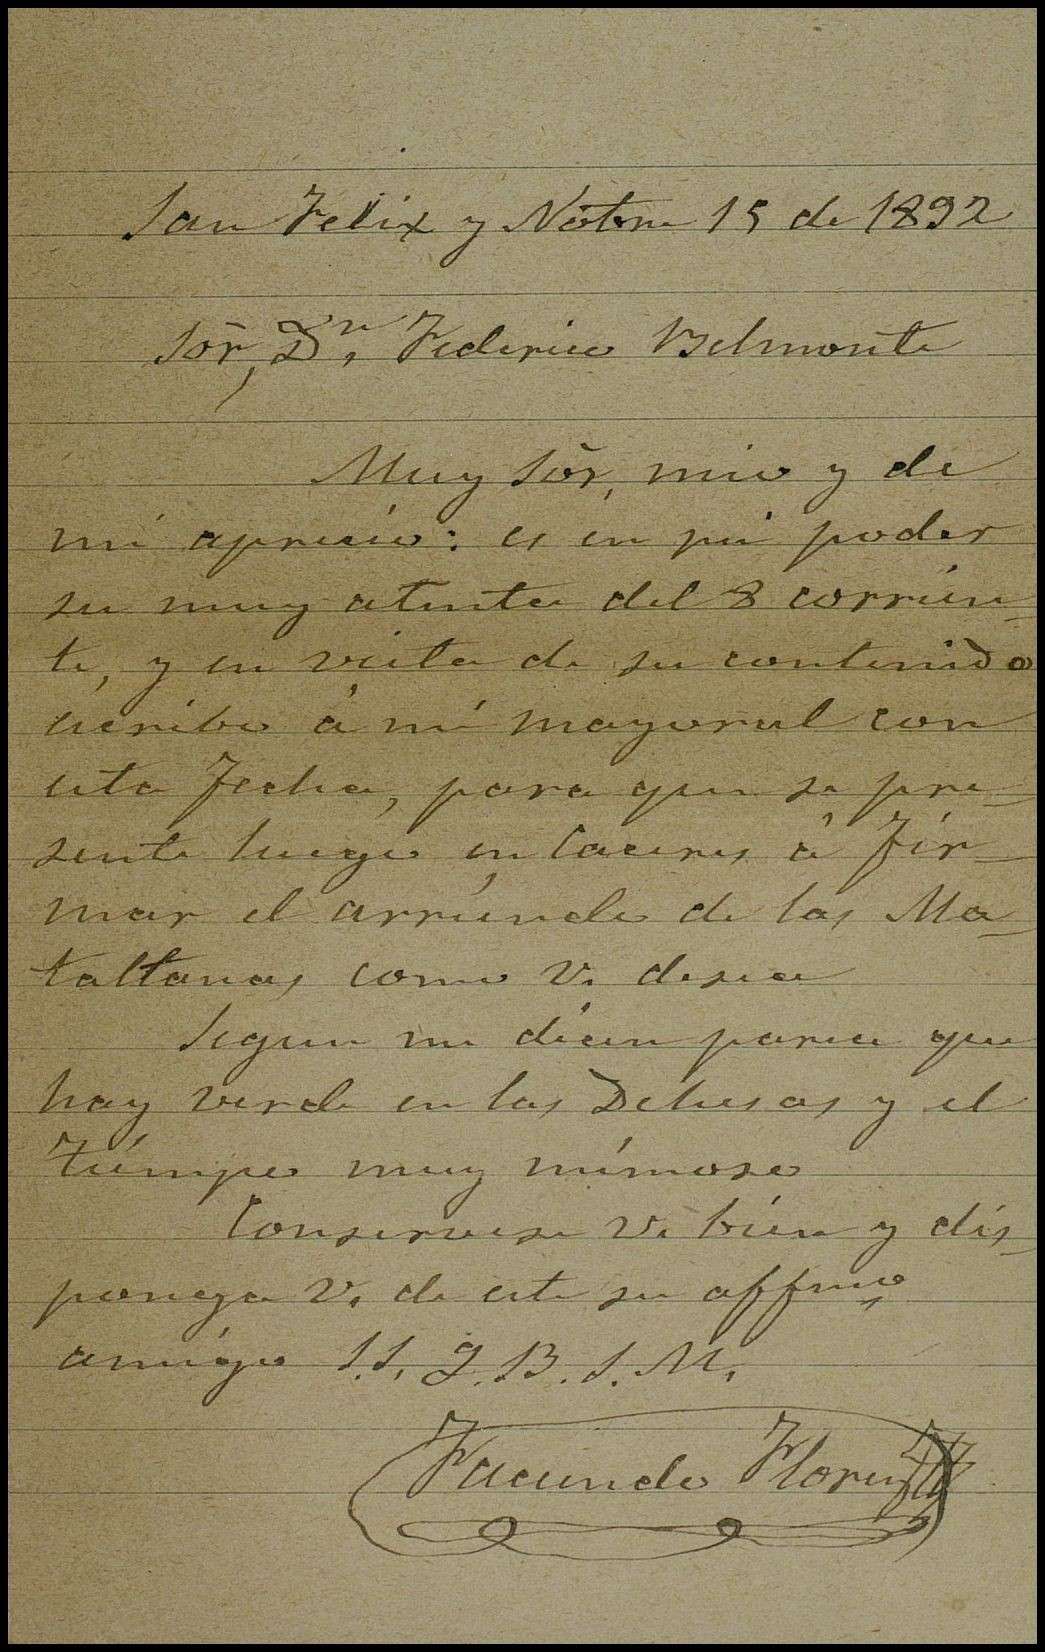 San Felix y Nobre 15 de 1892
Sor, Dn. Federico Belmonte
Muy Sor, mio y de
mi aprecio: es en mi poder
su muy atenta del 8 corrien-
te, y en vista de su contenido
escribo á mi mayoral con
esta fecha, para que se pre-
sente luego en Caceres á fir-
mar el arriendo de las Ma-
taltanas como V. desea
Segun me dicen parece que
hay verde en las Dehesas y el
tiempo muy mimoso
Conservese V. bien y dis-
ponga V. de este su affmo
amigo S.S. Q.B.S.M.
Facundo Florez